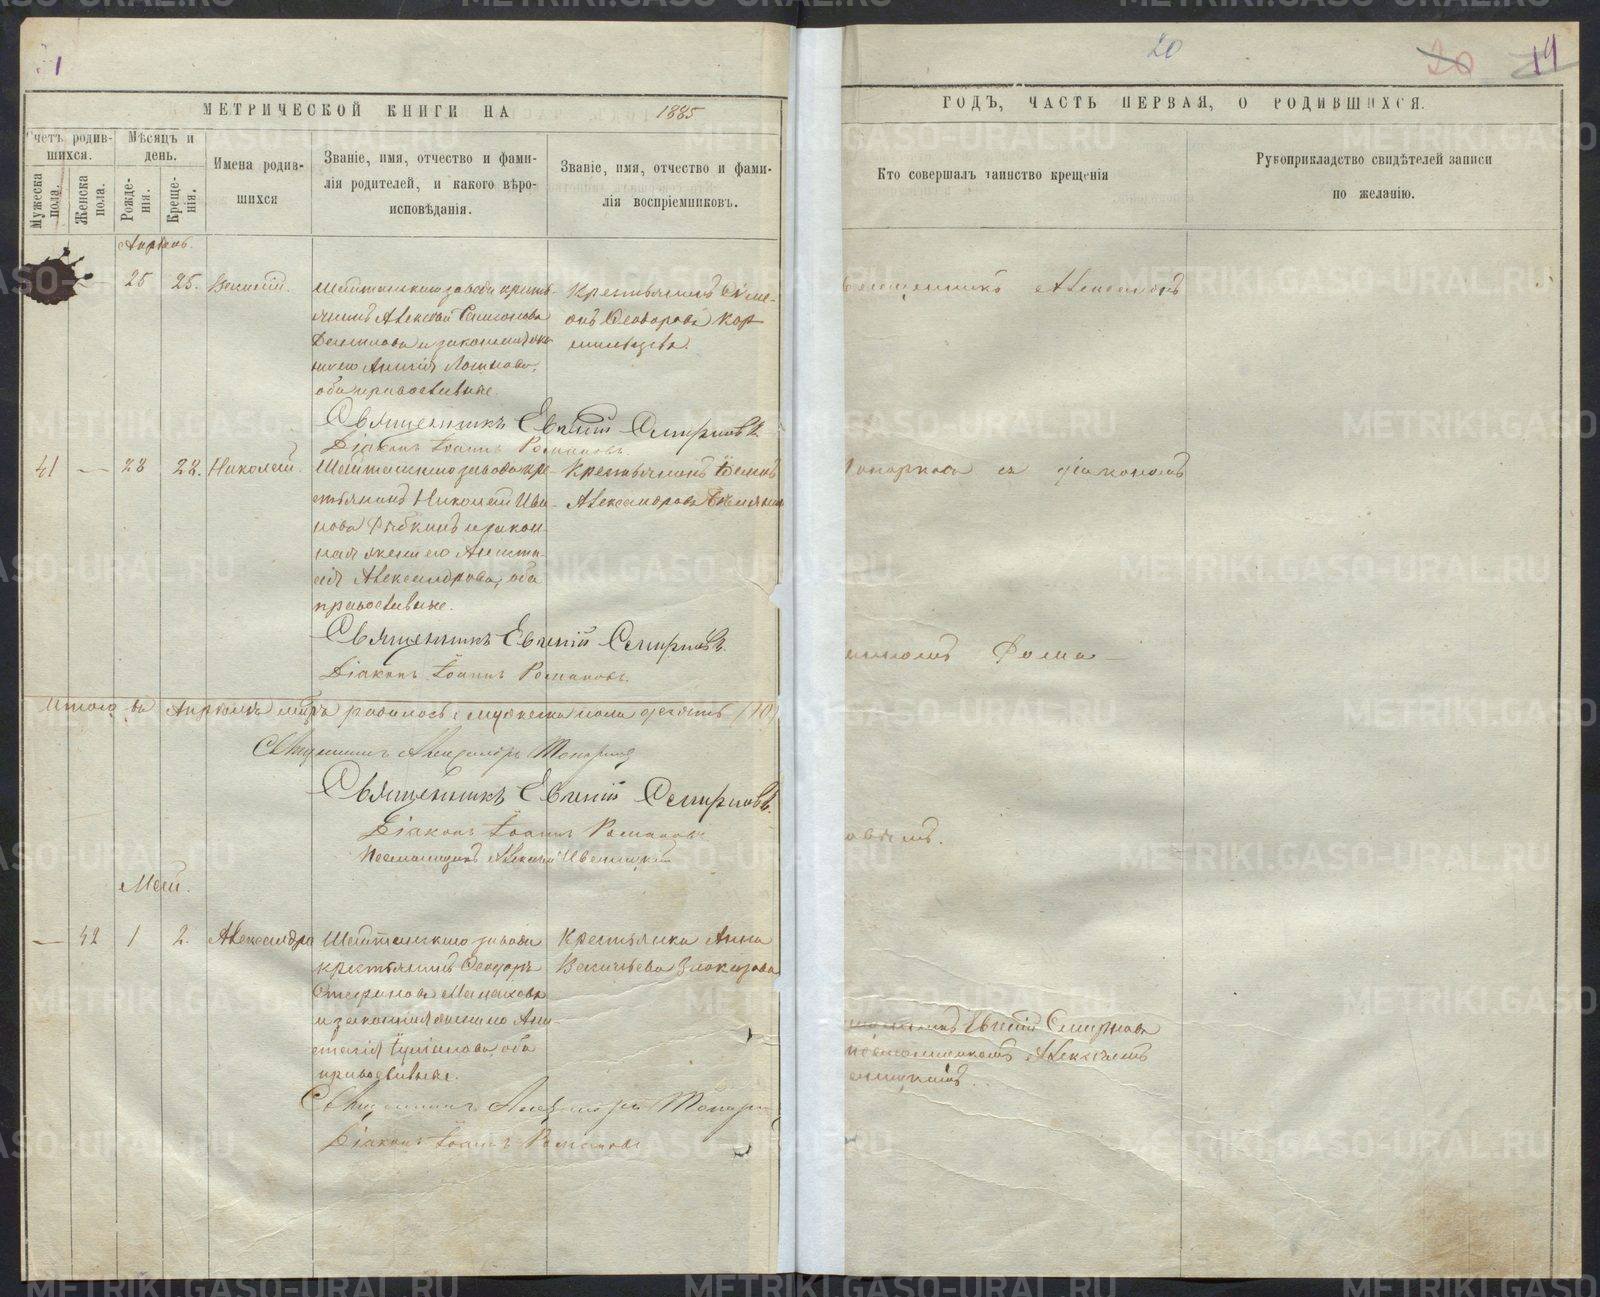 1
20
20
19
МЕТРИЧЕСКОЙ КНИГИ НА 1885
ГОДЪ, ЧАСТЬ ПЕРВАЯ, О РОДИВШИХСЯ.
Счетъ родив-
шихся.
Мужеска
пола.
Женска
пола.
Мѣсяцъ и
день.
Рожде-
нія.
Креще-
нія.
Имена родив-
шихся
Званіе, имя, отчество и фами-
лія родителей, и какого вѣро-
исповѣданія.
Званіе, имя, отчество и фами-
лія воспріемниковъ.
Кто совершалъ таинство крещенія
Рукоприкладство свидѣтелей записи
по желанію.
Апрѣль.
— 25 25. Василій.
Шайтанскаго завода кресть-
янинъ Алексѣй
и законная же-
на его
оба православные.
Крестьянинъ Симе-
онъ Ѳеодоровъ Кор
мильцевъ.
Священникъ Александръ
Священникъ Евгеній Смирновъ.
Діаконъ Іоаннъ Романовъ.
41 — 28 28. Николай.
Шайтанскаго завода кре-
стьянинъ Николай Ива-
новъ Рыбкинъ и закон-
ная жена его Анаста-
сія Александрова, оба
православные.
Крестьянинъ
Александровъ
Топорковъ съ діакономъ
Священникъ Евгеній Смирновъ.
Діаконъ Іоаннъ Романовъ.
Рома-
Итого въ Апрѣлѣ мѣсяцѣ родилось: мужеска пола десять (10)
Священникъ Александръ Топорковъ
Священникъ Евгеній Смирновъ.
Діаконъ Іоаннъ Романовъ
Псаломщикъ Алексій Ивановскій
новымъ.
Май.
— 42 1 2. Александра
Шайтанскаго завода
крестьянинъ Ѳеодоръ
Стефановъ Малаховъ
и законная жена его Ана-
стасія Іуліанова, оба
православные.
Крестьянка Анна
Васильева Злоказова
Евгеній Смирновъ
псаломщикомъ Алексѣемъ
Священникъ Александръ Топорковъ
Діаконъ Іоаннъ Романовъ
METRIKI.GASO-URAL.RU